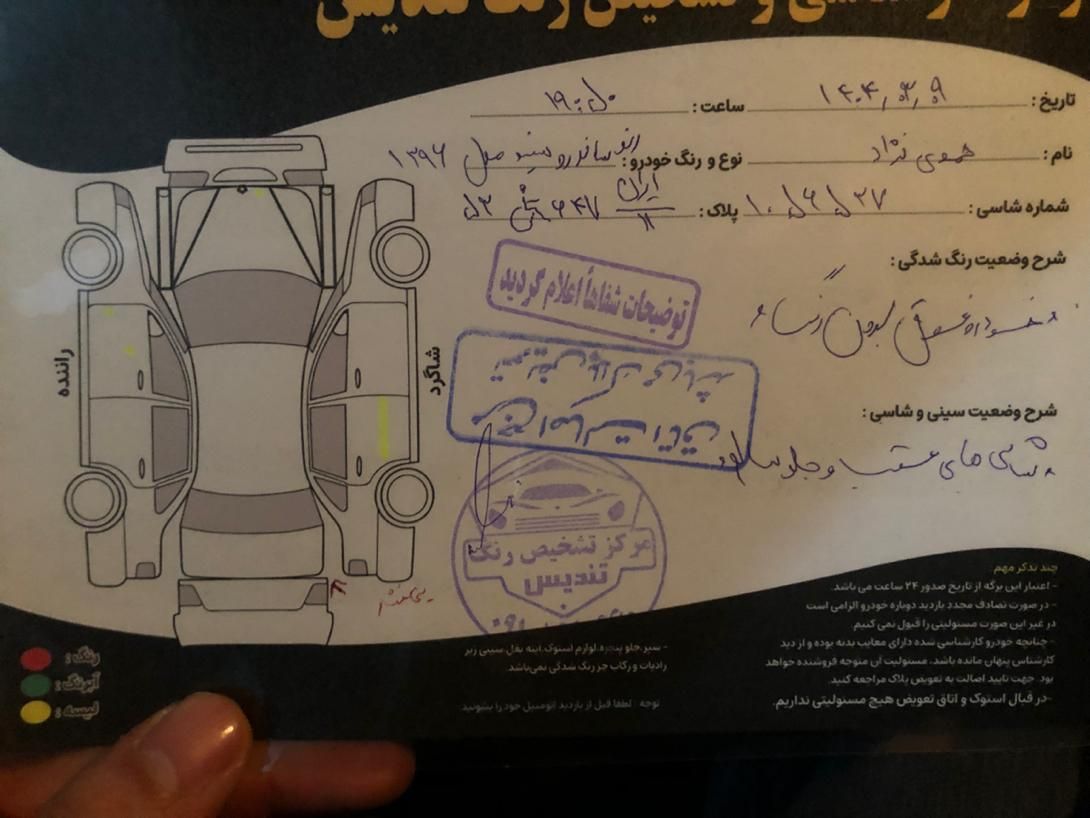 تشخیص رنگ تندیس
تاریخ : ۱۴۰۴,۰۳,۰۹ ساعت : ۱۹:۵۰
نام : نژاد نوع و رنگ خودرو : رنو ساندرو سپید مدل ۱۳۹۶
شماره شاسی : ۱۰۵۶۵۳۷ پلاک : ایران ۱۱ ۶۴۷ ۵۳
شرح وضعیت رنگ شدگی :
توضیحات شفاهاً اعلام گردید
خودرو فوق بدون رنگ
شرح وضعیت سینی و شاسی :
شاسی های عقب و جلو سالم
راننده
شاگرد
مرکز تشخیص رنگ
تندیس
رنگ :
آبرنگ :
لیسه :
- سپر،جلو پنجره،لوازم استوک،آینه بغل،سینی زیر
رادیات و رکاب جزء رنگ شدگی نمی‌باشد
توجه : لطفا قبل از بازدید اتومبیل خود را بشوئید
چند تذکر مهم
- اعتبار این برگه از تاریخ صدور ۲۴ ساعت می باشد.
- در صورت تصادف مجدد بازدید دوباره خودرو الزامی است
در غیر این صورت مسئولیتی را قبول نمی کنیم.
- چنانچه خودرو کارشناسی شده دارای معایب بدنه بوده و از دید
کارشناس پنهان مانده باشد، مسئولیت آن متوجه فروشنده خواهد
بود. جهت تایید اصالت به تعویض پلاک مراجعه کنید.
-در قبال استوک و اتاق تعویض هیچ مسئولیتی نداریم.